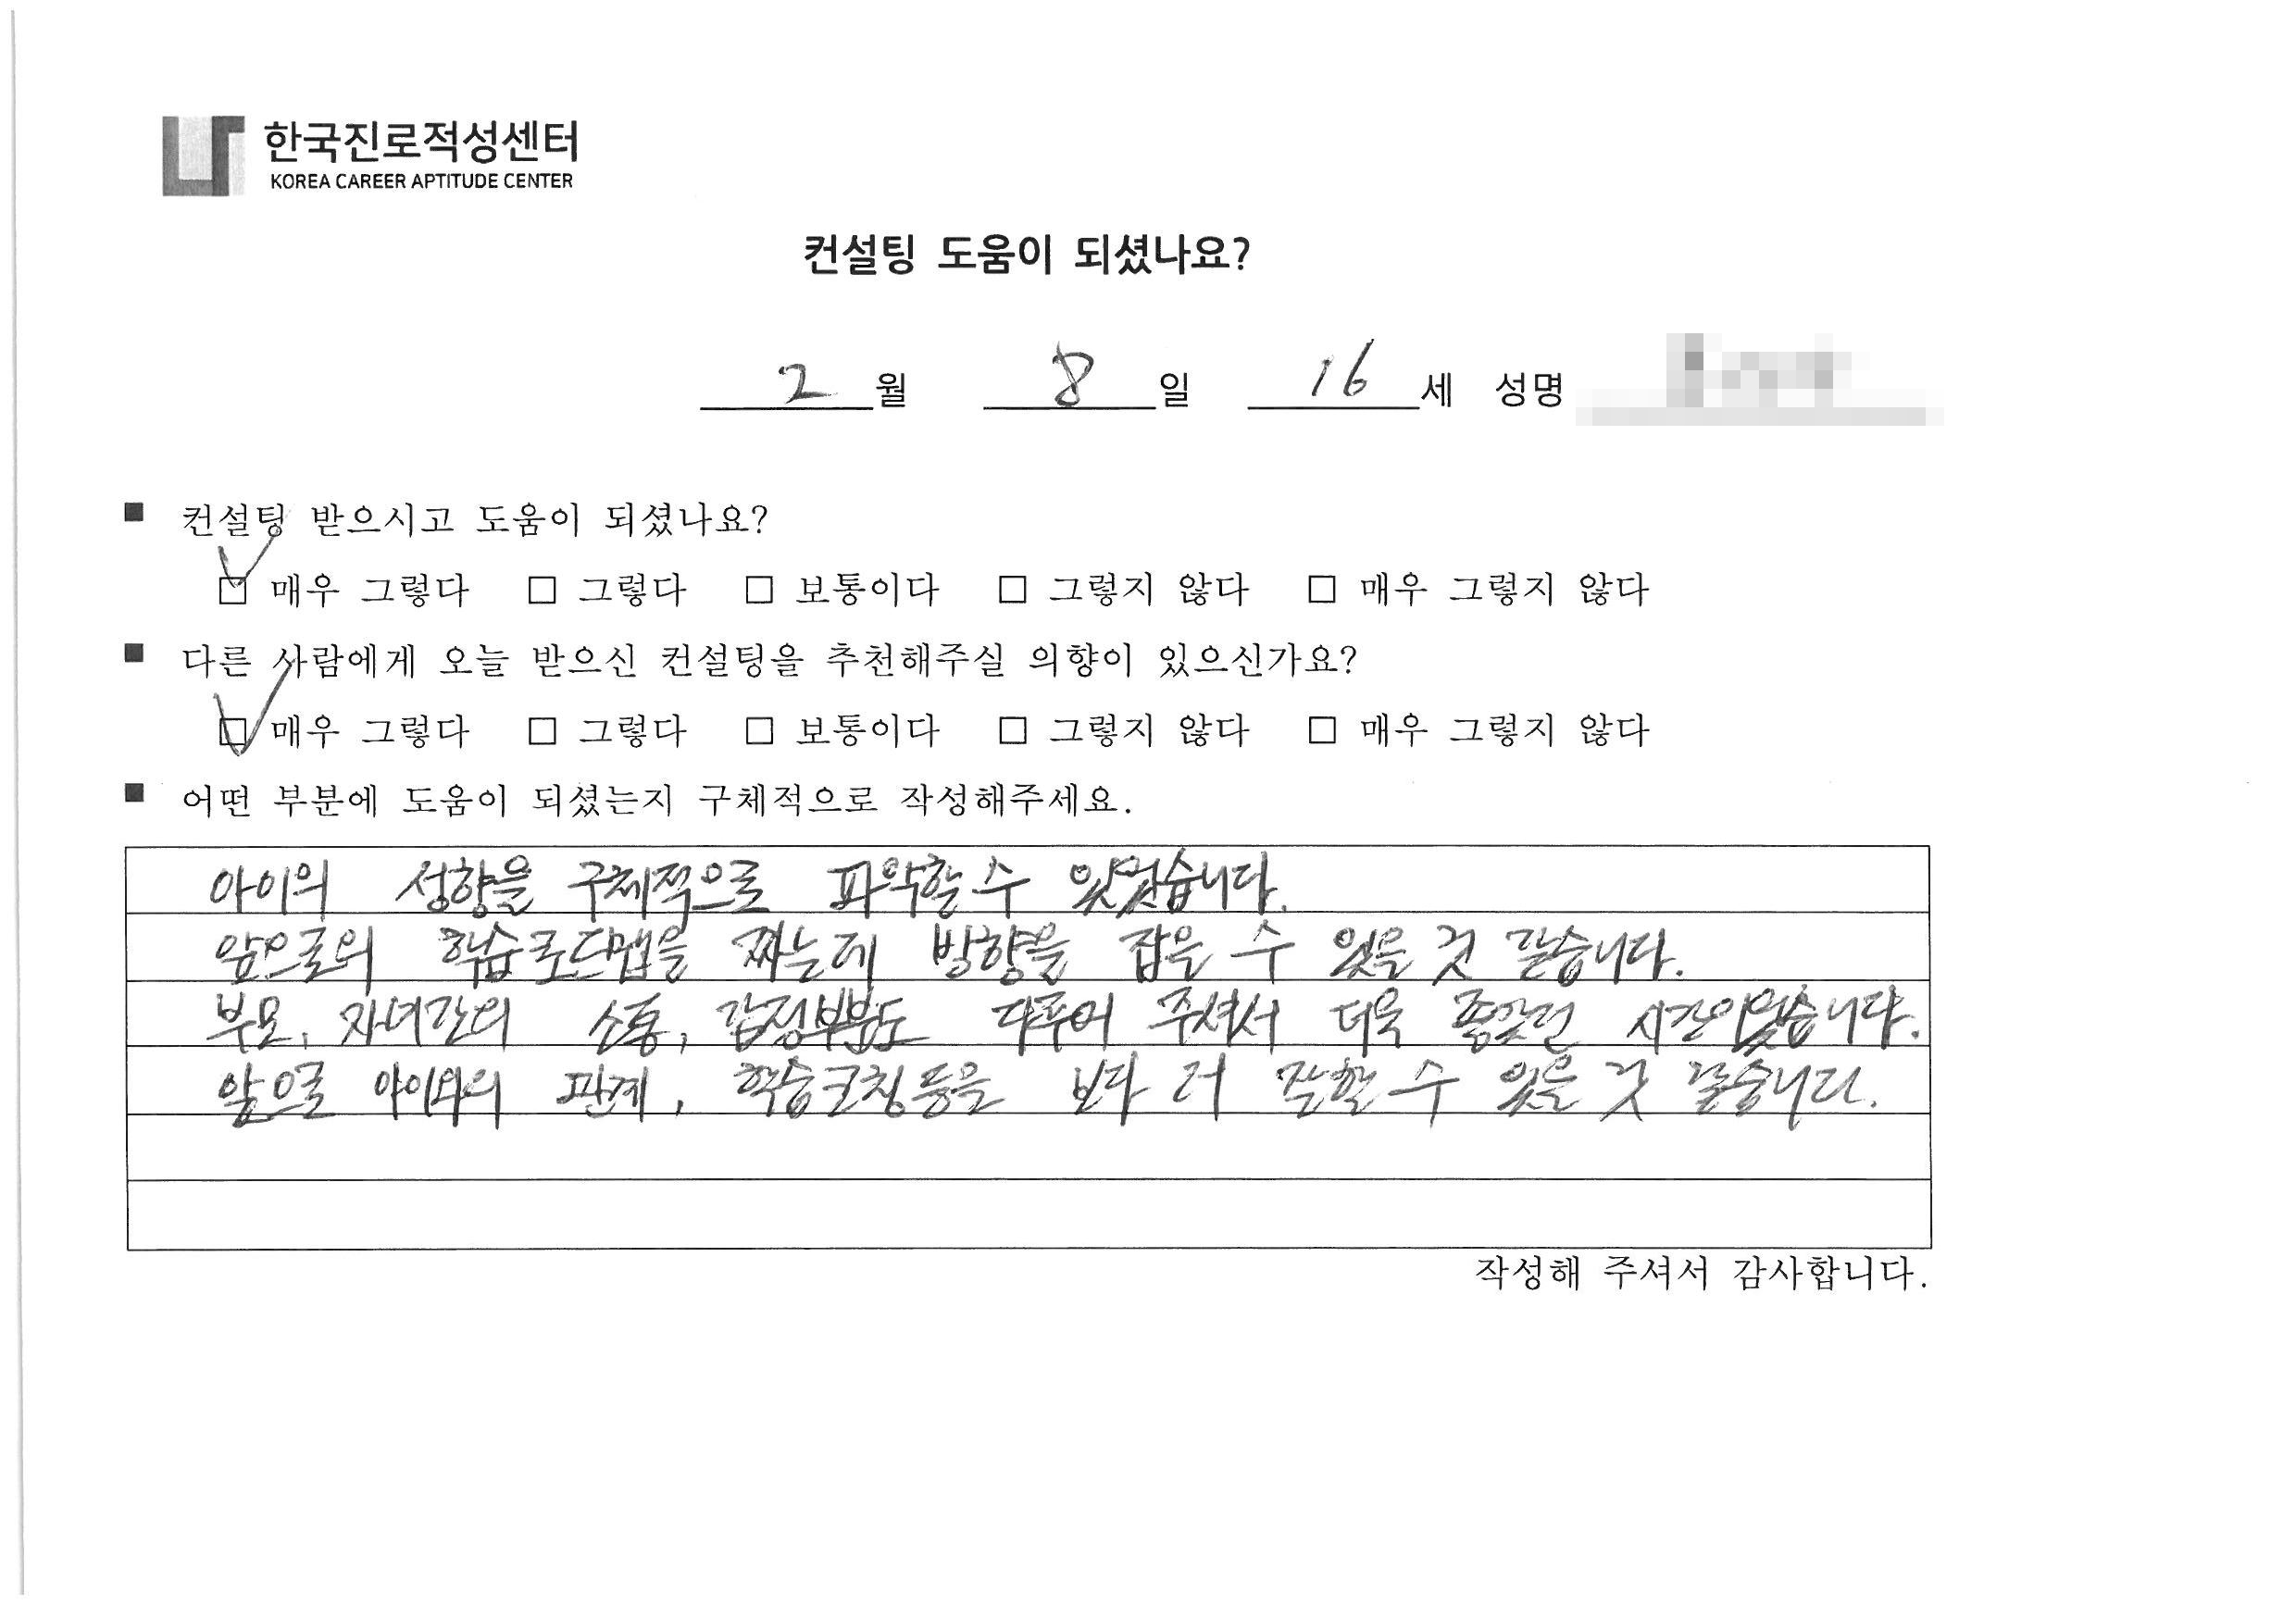 한국진로적성센터
KOREA CAREER APTITUDE CENTER
컨설팅 도움이 되셨나요?
2 월 8 일 16 세 성명
■ 컨설팅 받으시고 도움이 되셨나요?
☑ 매우 그렇다 □ 그렇다 □ 보통이다 □ 그렇지 않다 □ 매우 그렇지 않다
■ 다른 사람에게 오늘 받으신 컨설팅을 추천해주실 의향이 있으신가요?
☑ 매우 그렇다 □ 그렇다 □ 보통이다 □ 그렇지 않다 □ 매우 그렇지 않다
■ 어떤 부분에 도움이 되셨는지 구체적으로 작성해주세요.
아이의 성향을 구체적으로 파악할 수 있었습니다.
앞으로의 학습로드맵을 짜는데 방향을 잡을 수 있을 것 같습니다.
부모, 자녀간의 소통, 감정부분도 다루어 주셔서 더욱 좋았던 시간이었습니다.
앞으로 아이와의 관계, 학습코칭등을 보다 더 잘할 수 있을 것 같습니다.
작성해 주셔서 감사합니다.